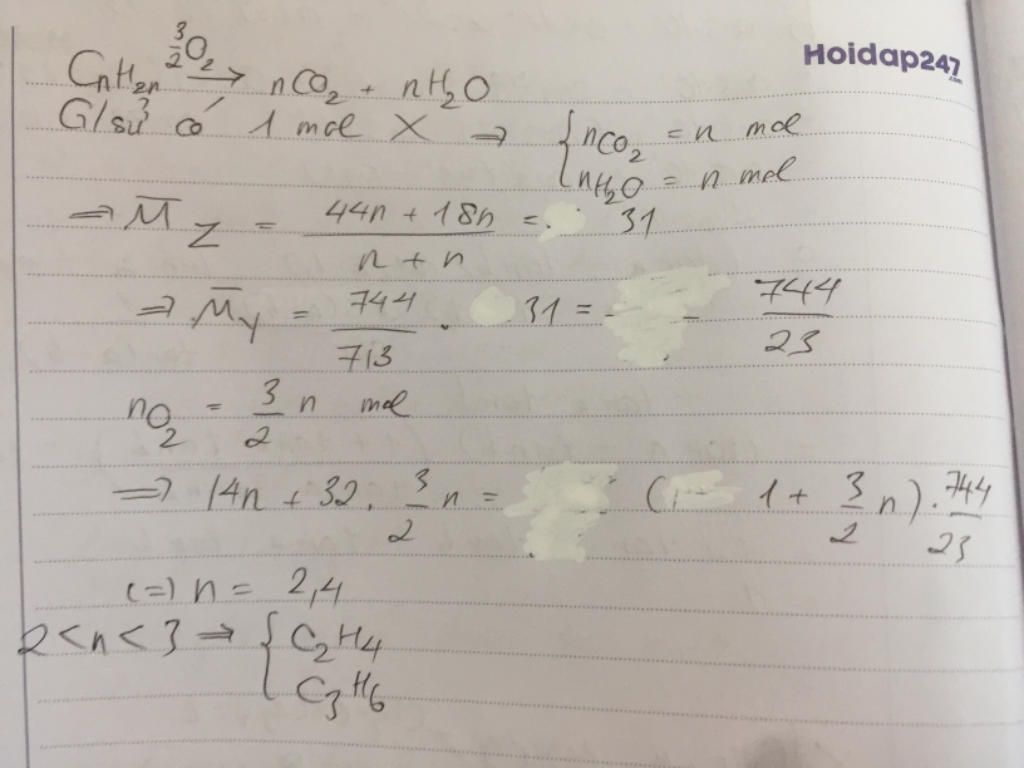 Hoidap247.com
CnH2n 3/2O2 → nCO2 + nH2O
G/sử có 1 mol X ⇒ { nCO2 = n mol
nH2O = n mol
⇒ M̅Z = (44n + 18n)/(n + n) = 31
⇒ M̅Y = 744/713 . 31 = 744/23
nO2 = 3/2 n mol
⇒ 14n + 32. 3/2 n = (1 + 3/2 n) . 744/23
(=) n = 2,4
2 < n < 3 ⇒ { C2H4
C3H6